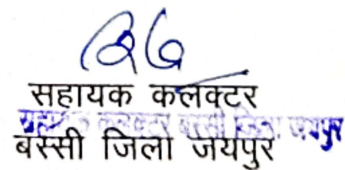 सहायक कलक्टर
बस्सी जिला जयपुर